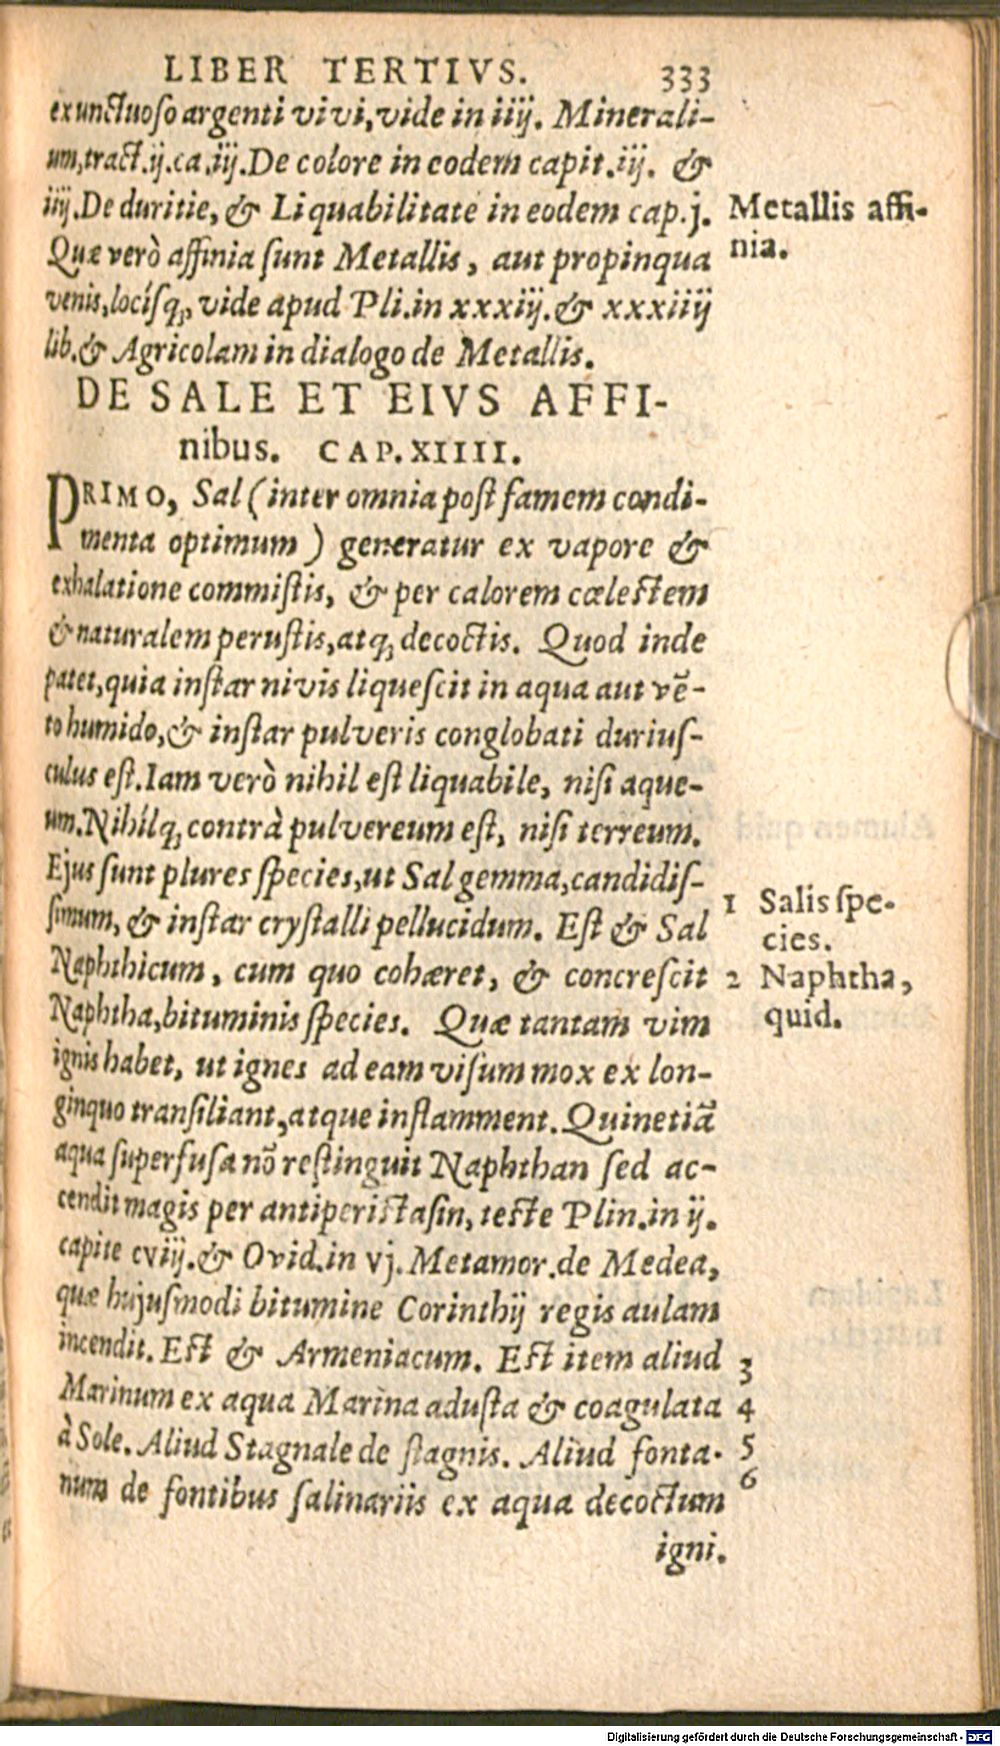 LIBER TERTIVS. 333
ex unctuoso argenti vivi, vide in iiij. Minerali-
um, tract. ij. ca. iij. De colore in eodem capit. iij. &
iiij. De duritie, & Liquabilitate in eodem cap. j.
Quæ verò affinia sunt Metallis, aut propinqua
venis, locísq;, vide apud Pli. in xxxiij. & xxxiiij
lib. & Agricolam in dialogo de Metallis.
Metallis affi-
nia.
DE SALE ET EIVS AFFI-
nibus. CAP. XIIII.
PRIMO, Sal (inter omnia post famem condi-
menta optimum) generatur ex vapore &
exhalatione commistis, & per calorem cælestem
& naturalem perustis, atq; decoctis. Quod inde
patet, quia instar nivis liquescit in aqua aut vē-
to humido, & instar pulveris conglobati durius-
culus est. Iam verò nihil est liquabile, nisi aque-
um. Nihílq; contrà pulvereum est, nisi terreum.
Ejus sunt plures species, ut Sal gemma, candidis-
simum, & instar crystalli pellucidum. Est & Sal
Naphthicum, cum quo cohæret, & concrescit
Naphtha, bituminis species. Quæ tantam vim
ignis habet, ut ignes ad eam visum mox ex lon-
ginquo transiliant, atque inflamment. Quinetiā
aqua superfusa nō restinguit Naphthan sed ac-
cendit magis per antiperistasin, teste Plin. in ij.
capite cviij. & Ovid. in vj. Metamor. de Medea,
quæ hujusmodi bitumine Corinthij regis aulam
incendit. Est & Armeniacum. Est item aliud
Marinum ex aqua Marina adusta & coagulata
à Sole. Aliud Stagnale de stagnis. Aliud fonta-
num de fontibus salinariis ex aqua decoctum
igni.
1 Salis spe-
cies.
2 Naphtha,
quid.
3
4
5
6
Digitalisierung gefördert durch die Deutsche Forschungsgemeinschaft - DFG